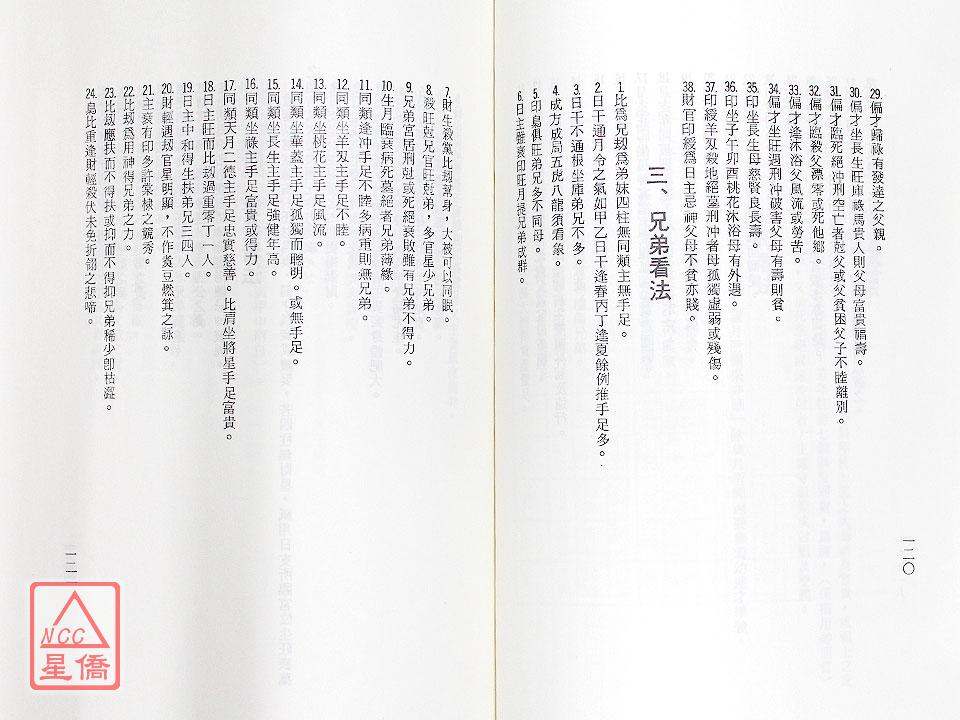 29.偏才歸祿有發達之父親。
30.偏才坐長生旺庫祿馬貴人則父母富貴福壽。
31.偏才臨死絕冲刑空亡者尅父或父貧困父子不睦離別。
32.偏才臨殺父漂零或死他鄉。
33.偏才逢沐浴父風流或勞苦。
34.偏才坐旺遇刑冲破害父母有壽則貧。
35.印坐長生母慈賢良長壽。
36.印坐子午卯酉桃花沐浴母有外遇。
37.印綬羊刄殺地絕墓刑冲者母孤獨虛弱或殘傷。
38.財官印綬爲日主忌神父母不貧亦賤。
三、兄弟看法
1.比爲兄刼爲弟妹四柱無同類主無手足。
2.日干通月令之氣如甲乙日干逢春丙丁逢夏餘例推手足多。
3.日干不通根坐庫弟兄不多。
4.成方成局五虎八龍須看象。
5.印梟俱旺弟兄多不同母。
6.日主雖衰印旺月提兄弟成群。
一二〇
7.財生殺黨比刼幫身,大被可以同眠。
8.殺旺尅兄官旺尅弟,多官星少兄弟。
9.兄弟宮居刑尅或死絕衰敗雖有兄弟不得力。
10.生月臨衰病死墓絕者兄弟薄緣。
11.同類逢冲手足不睦多病重則無兄弟。
12.同類坐羊刄主手足不睦。
13.同類坐桃花主手足風流。
14.同類坐華蓋主手足孤獨而聰明。或無手足。
15.同類坐長生主手足強健年高。
16.同類坐祿主手足富貴或得力。
17.同類天月二德主手足忠實慈善。比肩坐將星手足富貴。
18.日主旺而比刼過重零丁一人。
19.日主中和得生扶弟兄三四人。
20.財輕遇刼官星明顯,不作煑豆燃箕之詠。
21.主衰有印多許棠棣之競秀。
22.比刼爲用神得兄弟之力。
23.比刼應扶而不得扶或抑而不得抑兄弟稀少卽枯澀。
24.梟比重逢財輕殺伏未免折翎之悲啼。
一二
NCC
星僑